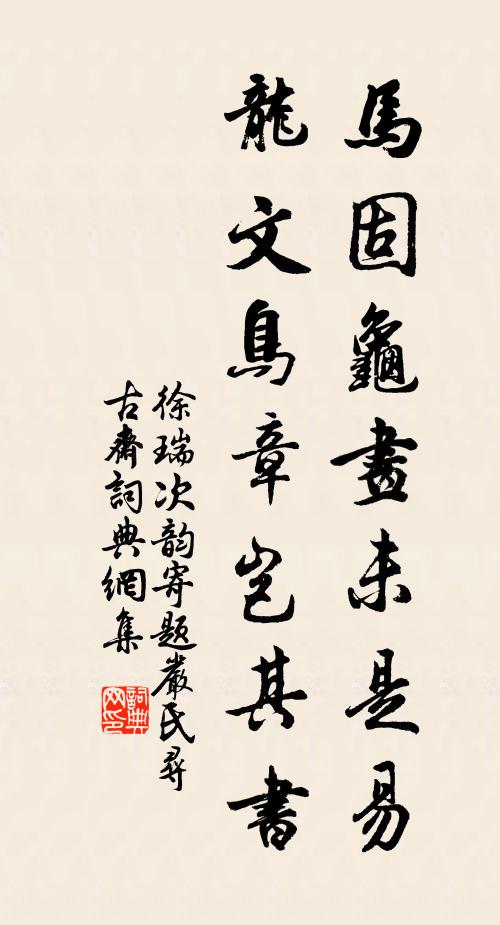 馬固龜畫未是易
龍文鳥章豈其書
徐瑞次韵寄題嚴氏尋
古齋詞典網集
詞典
网印